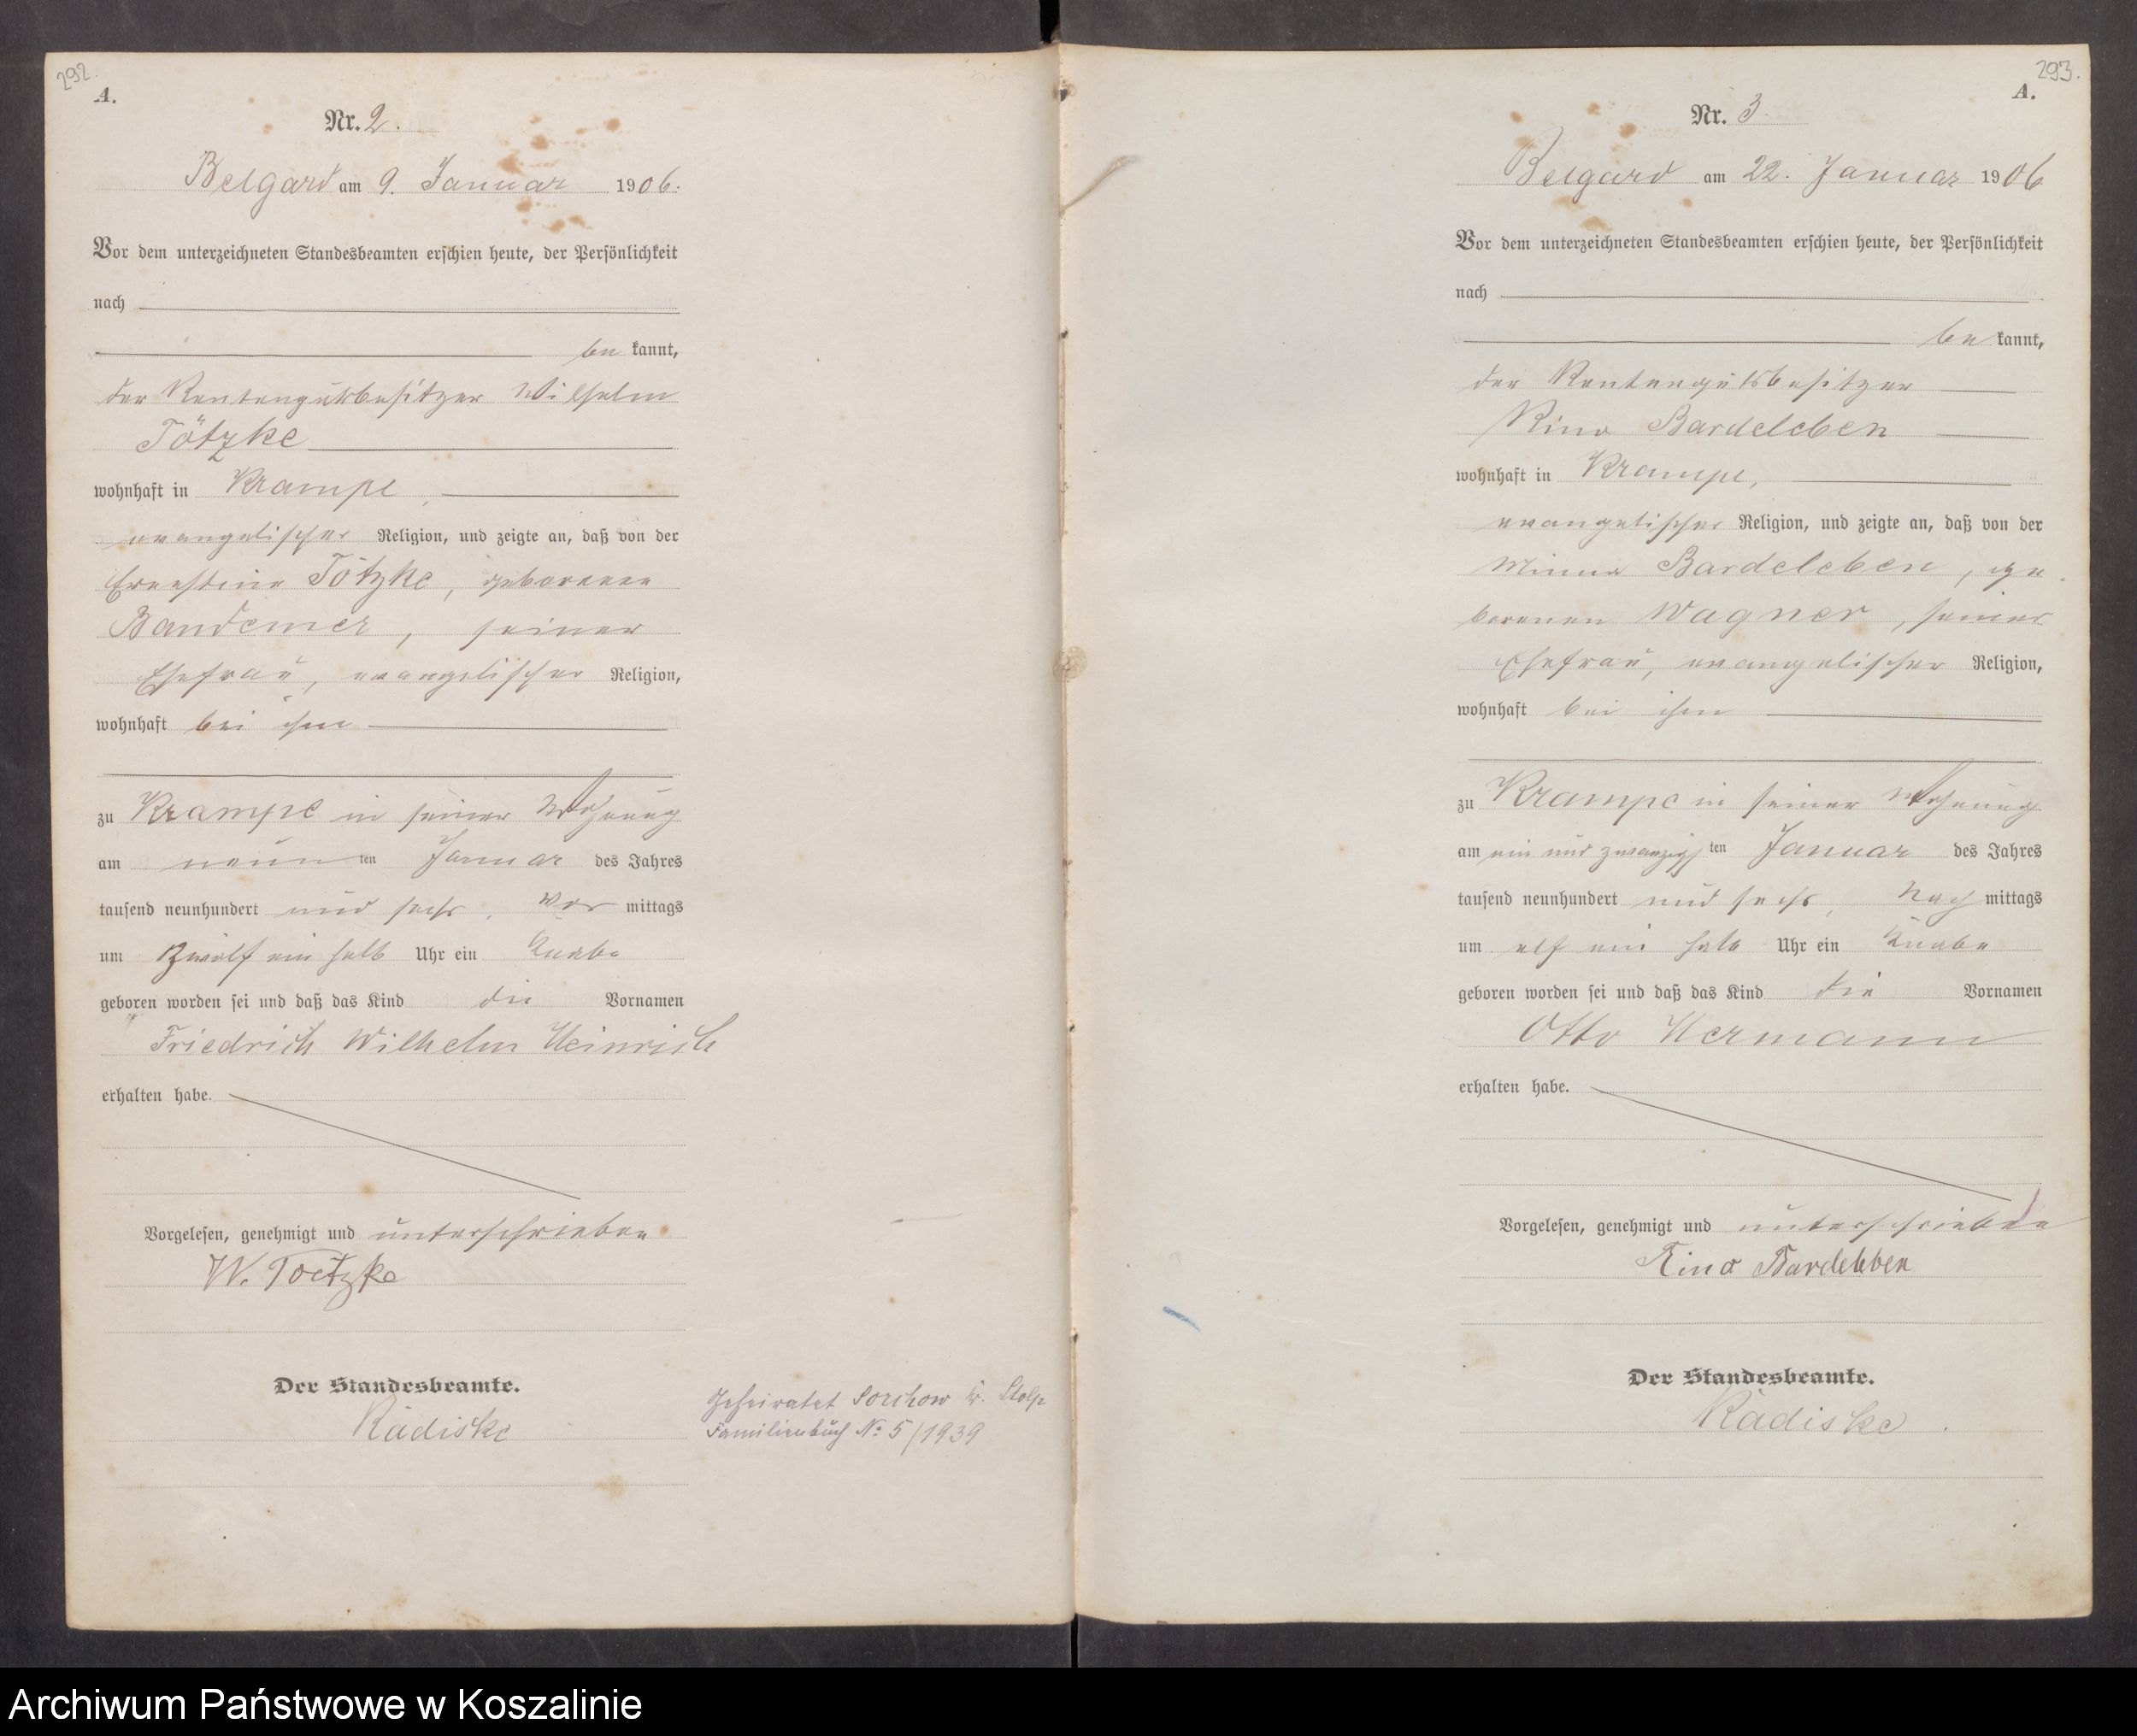 292.
A.
Nr. 2.
Belgard am 9. Januar 1906.
Vor dem unterzeichneten Standesbeamten erschien heute, der Persönlichkeit
nach
be kannt,
der Rentengutsbesitzer Wilhelm
Tötzke
wohnhaft in Krampe,
evangelischer Religion, und zeigte an, daß von der
Ernestine Tötzke, geborenen
Bandemer, seiner
Ehefrau, evangelischer Religion,
wohnhaft bei ihm
zu Krampe in seiner Wohnung
am neun ten Januar des Jahres
tausend neunhundert und sechs, Vor mittags
um zwölf ein halb Uhr ein Knabe
geboren worden sei und daß das Kind die Vornamen
Friedrich Wilhelm Heinrich
erhalten habe.
Vorgelesen, genehmigt und unterschrieben
W. Toetzke
Der Standesbeamte.
Radiske
Geheiratet Sorchow Kr. Stolp
Familienbuch No 5/1939
293.
A.
Nr. 3.
Belgard am 22. Januar 1906
Vor dem unterzeichneten Standesbeamten erschien heute, der Persönlichkeit
nach
be kannt,
der Rentengutsbesitzer
Rino Bardeleben
wohnhaft in Krampe,
evangelischer Religion, und zeigte an, daß von der
Minna Bardeleben, ge-
borenen Wagner, seiner
Ehefrau, evangelischer Religion,
wohnhaft bei ihm
zu Krampe in seiner Wohnung
am ein und zwanzigs ten Januar des Jahres
tausend neunhundert und sechs, Nach mittags
um elf ein halb Uhr ein Knabe
geboren worden sei und daß das Kind die Vornamen
Otto Hermann
erhalten habe.
Vorgelesen, genehmigt und unterschrieben
Rino Bardeleben
Der Standesbeamte.
Radiske.
Archiwum Państwowe w Koszalinie